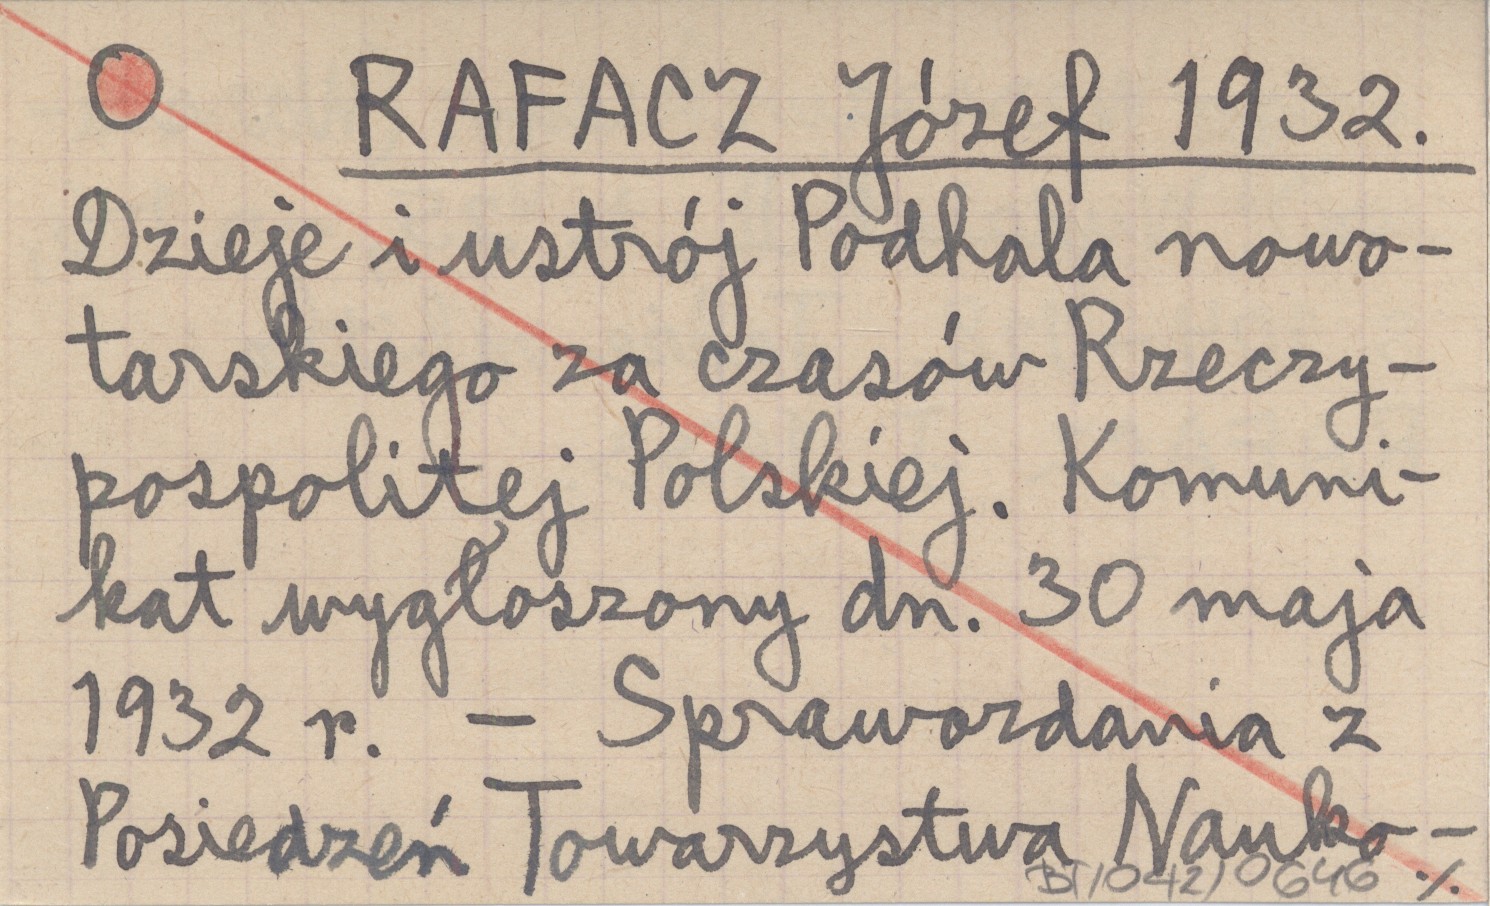 RAFACZ Józef 1932.
Dzieje i ustrój Podhala nowo-
tarskiego za czasów Rzeczy-
pospolitej Polskiej. Komuni-
kat wygłoszony dn. 30 maja
1932 r. - Sprawozdania z
Posiedzeń Towarzystwa Nauko-
BT/042/0646 ./.